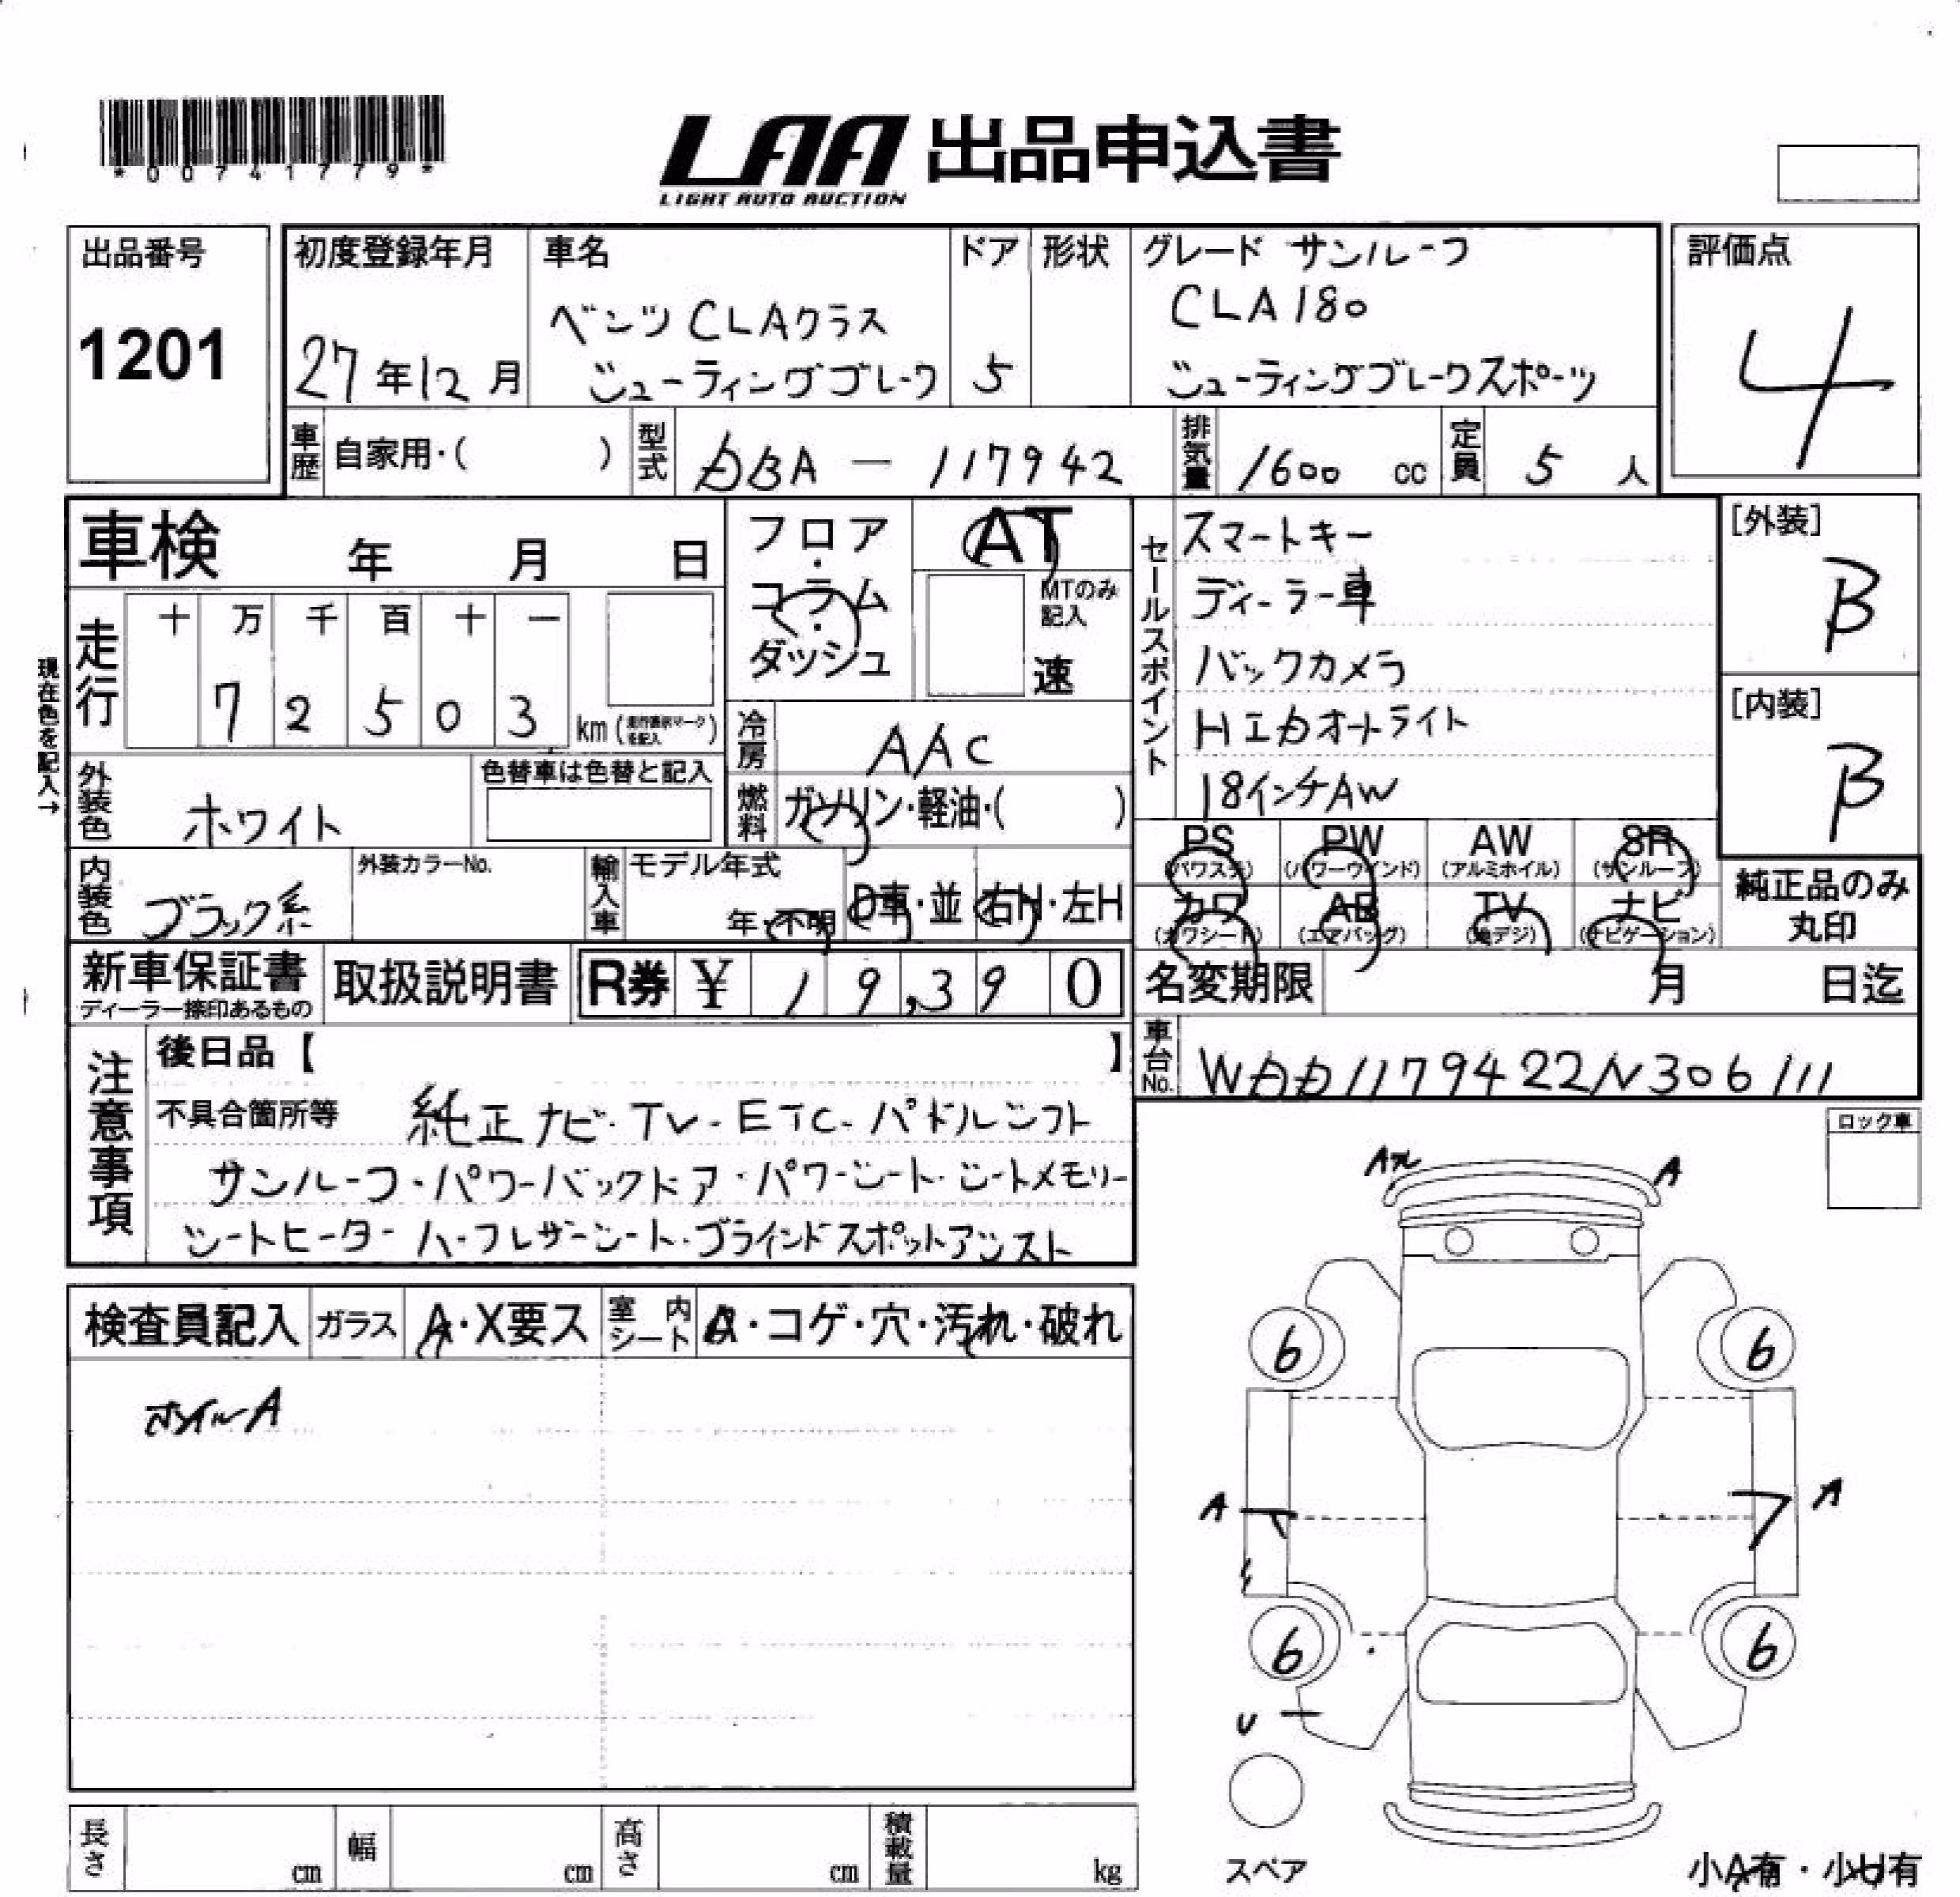 *00741779*
LAA 出品申込書
LIGHT AUTO AUCTION
出品番号
1201
初度登録年月
27年12月
車名
ベンツ CLAクラス
シューティングブレーク
ドア
5
形状
グレード サンルーフ
CLA180
シューティングブレークスポーツ
評価点
4
車歴
自家用・( )
型式
DBA - 117942
排気量
1600 cc
定員
5 人
車検 年 月 日
フロア・コラム・ダッシュ
AT
MTのみ記入
速
セールスポイント
スマートキー
ディーラー車
バックカメラ
HIDオートライト
18インチAW
[外装]
B
[内装]
B
現在色を記入→
走行
十 万 千 百 十 一
7 2 5 0 3 km
冷房
AAC
燃料
ガソリン・軽油・( )
外装色
ホワイト
色替車は色替と記入
内装色
ブラック系
外装カラーNo.
輸入車
モデル年式
年・不明
D車・並
右H・左H
PS
(パワステ)
PW
(パワーウインド)
AW
(アルミホイル)
SR
(サンルーフ)
カワ
(カワシート)
AB
(エアバッグ)
TV
(地デジ)
ナビ
(ナビゲーション)
純正品のみ
丸印
新車保証書
ディーラー捺印あるもの
取扱説明書
R券 ¥ 19,390
名変期限 月 日迄
車台No.
WDD1179422N306111
注意事項
後日品【 】
不具合箇所等 純正ナビ・TV-ETC-パドルシフト
サンルーフ・パワーバックドア・パワーシート・シートメモリー
シートヒーター ハーフレザーシート・ブラインドスポットアシスト
ロック車
検査員記入
ガラス
A・X要ス
室内シート
A・コゲ・穴・汚れ・破れ
ホイルA
A
6
6
A
A
6
6
U
スペア
小A有・小U有
長さ cm
幅 cm
高さ cm
積載量 kg